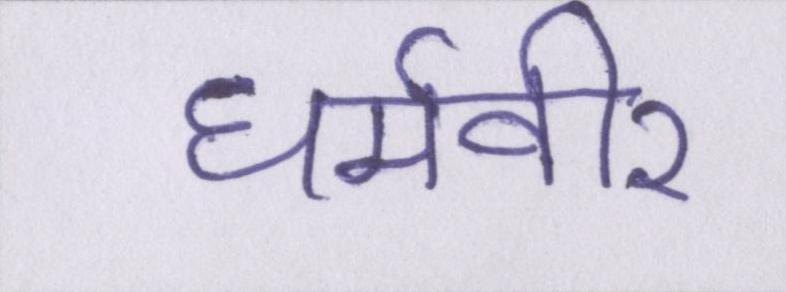 धर्मवीर